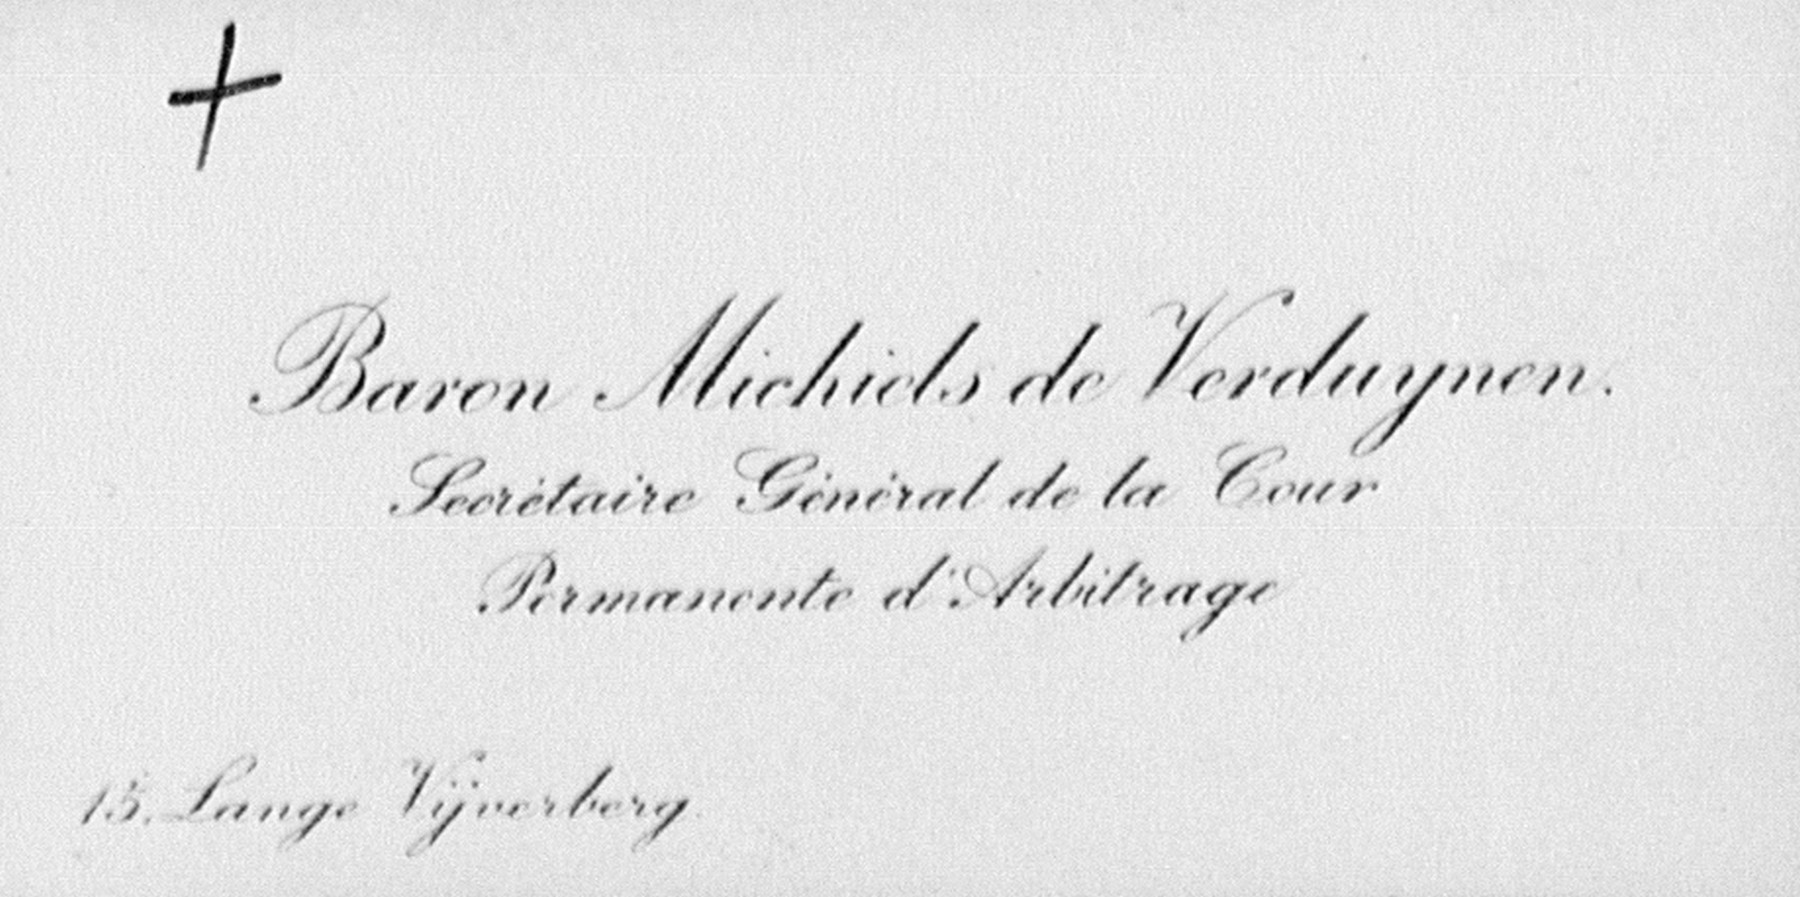 Baron Michiels de Verduynen.
Secrétaire Général de la Cour
Permanente d'Arbitrage
15. Lange Vijverberg.